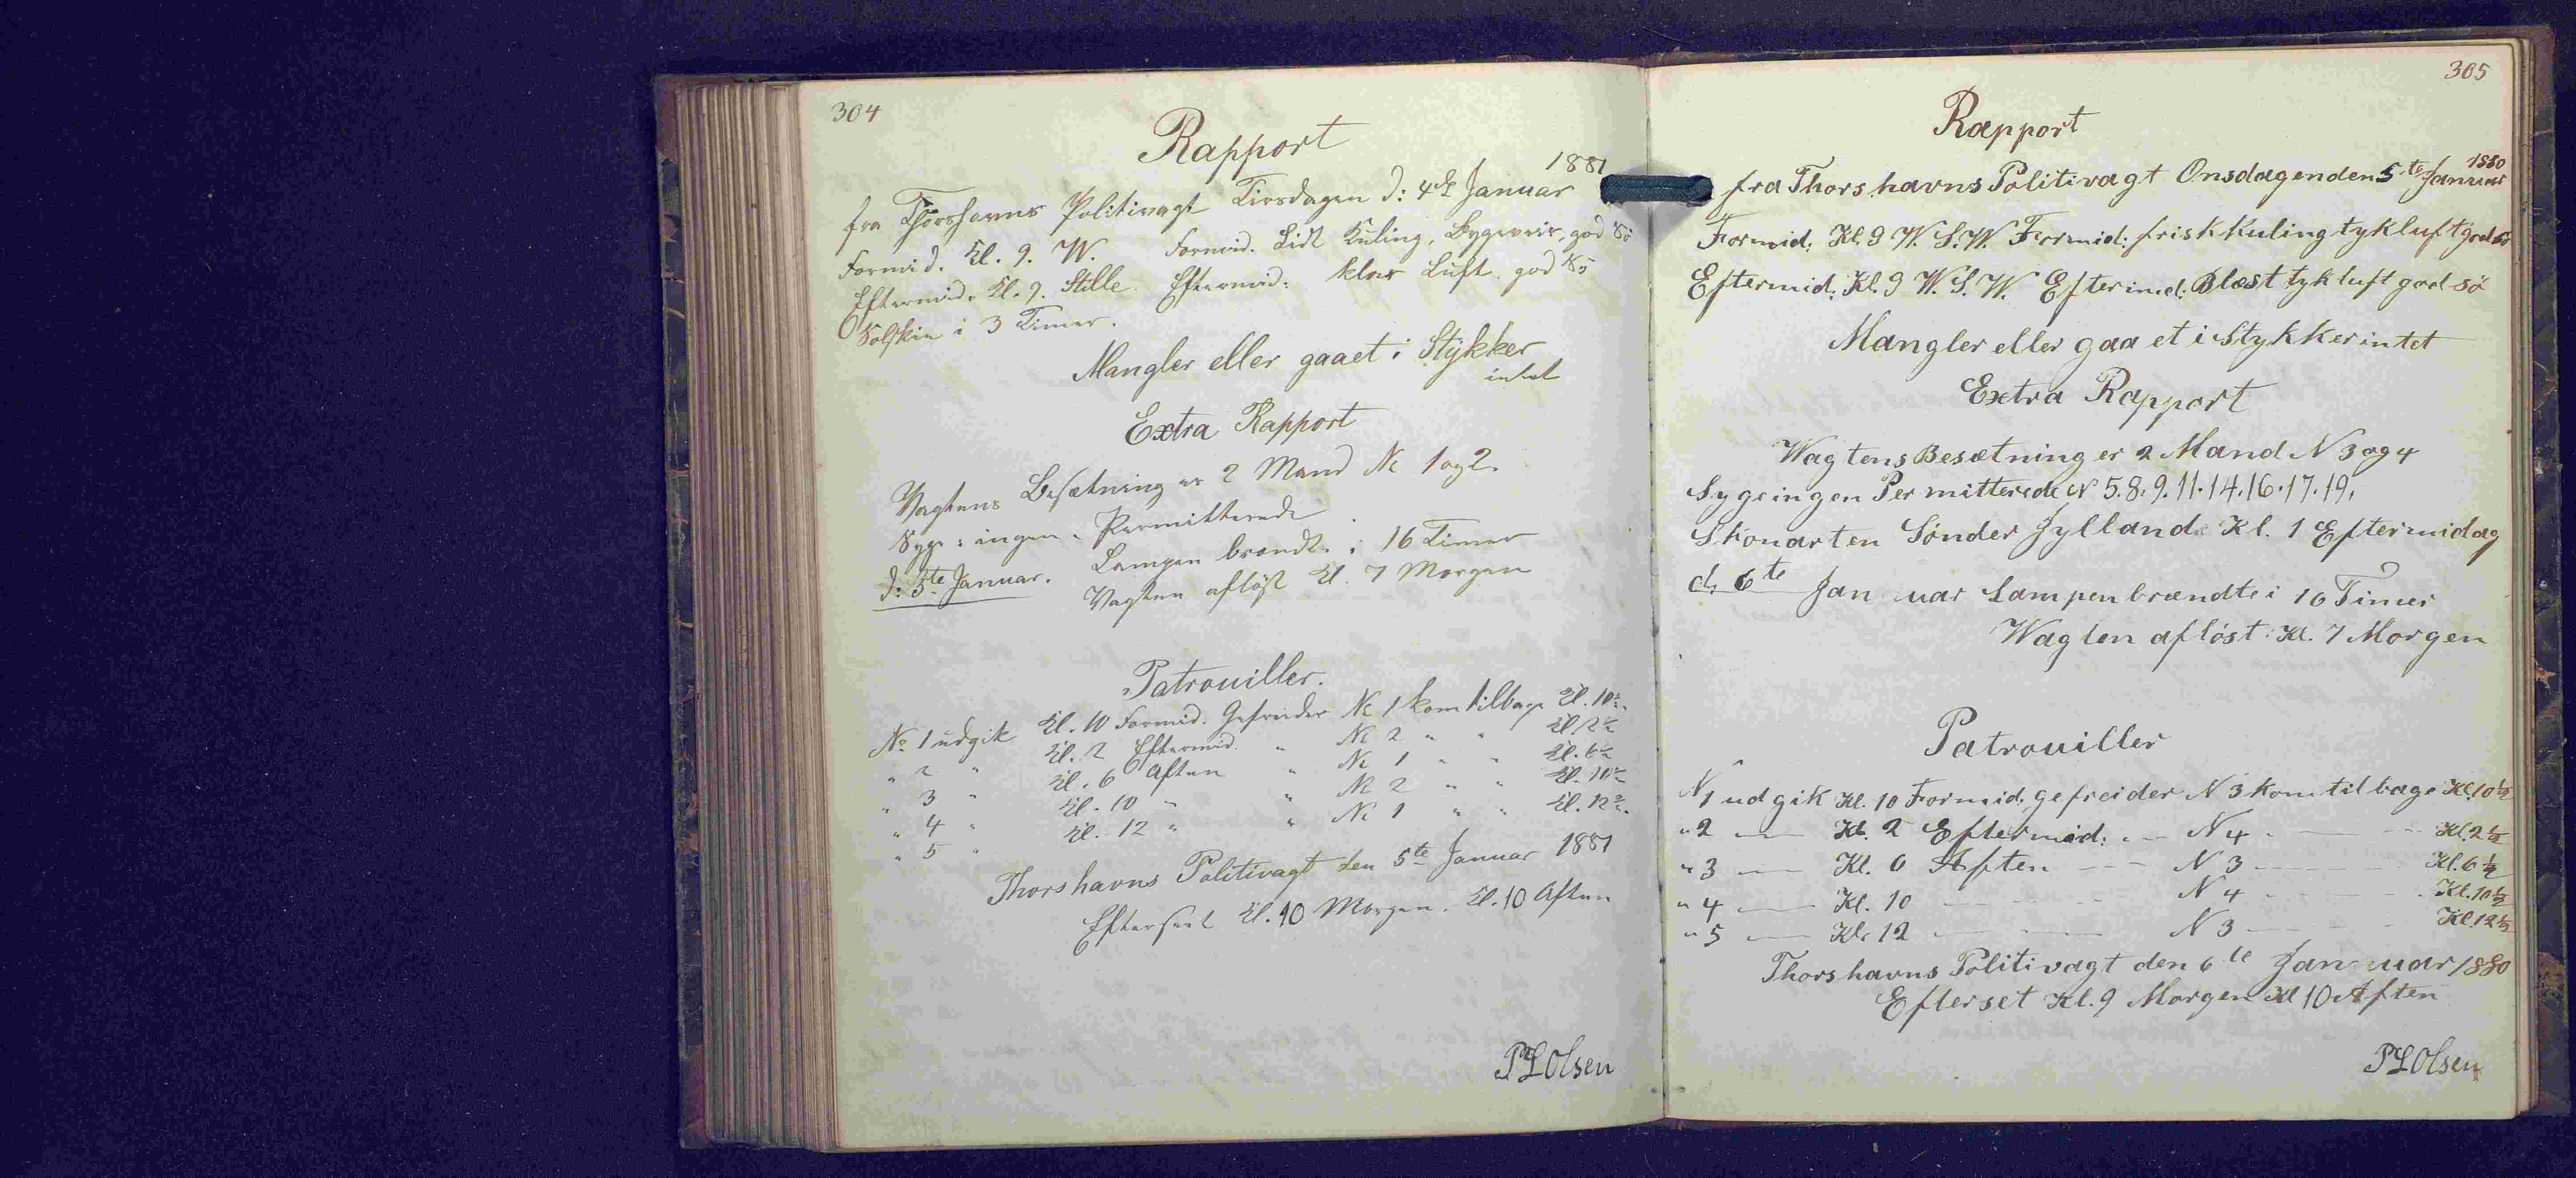 304
Rapport
1881
fra Thorshavns Politivagt Tirsdagen d: 4de Januar
Formid. Kl. 9. W. Formid. Lidt Kuling, Bygeveir, god Sö
Eftermid. Kl. 9. Stille. Eftermid: klar Luft. god Sö
Solskin i 3 Timer.
Mangler eller gaaet i Stykker
intet
Extra Rapport
Vagtens Besætning er 2 Mand No 1 og 2.
Syge: ingen. Permitterede
d: 5te Januar. Lampen brændte i 16 Timer
Vagten aflöst Kl. 7 Morgen
Patrouiller.
No 1 udgik Kl. 10 Formid. Gefreider No 1 kom tilbage Kl. 10½.
" 2 " Kl. 2 Eftermid. " No 2 " " Kl. 2½
" 3 " Kl. 6 Aften " No 1 " " Kl. 6½
" 4 " Kl. 10 " " No 2 " " Kl. 10½
" 5 " Kl. 12 " " No 1 " " Kl. 12½.
Thorshavns Politivagt den 5te Januar 1881
Efterseet Kl. 10 Morgen. Kl. 10 Aften
PLOlsen
305
Rapport
1880
fra Thorshavns Politivagt Onsdagen den 5te Januar
Formid: Kl. 9 W. S. W. Formid: frisk Kuling tyk luft god sö
Eftermid: Kl. 9 W. S. W. Eftermid: Blæst tyk luft god sö
Mangler eller gaaet i Stykker intet
Extra Rapport
Wagtens Besætning er 2 Mand N 3 og 4
Syge ingen Permitterede N 5. 8. 9. 11. 14. 16. 17. 19.
Skonarten Sönder Jylland Kl. 1 Eftermidag
d. 6te Januar Lampen brændte i 16 Timer
Wagten aflöst: Kl. 7 Morgen
Patrouiller
N 1 udgik Kl. 10 Formid. gefreider N 3 kom tilbage Kl. 10½
" 2 — Kl. 2 Eftermid: . — N 4 — Kl. 2½
" 3 — Kl. 6 Aften — N 3 — Kl. 6½
" 4 — Kl. 10 — N 4 — Kl. 10½
" 5 — Kl. 12 — N 3 — Kl. 12½
Thorshavns Politivagt den 6te Januar 1880
Efterset Kl. 9 Morgen Kl 10 Aften
PLOlsen